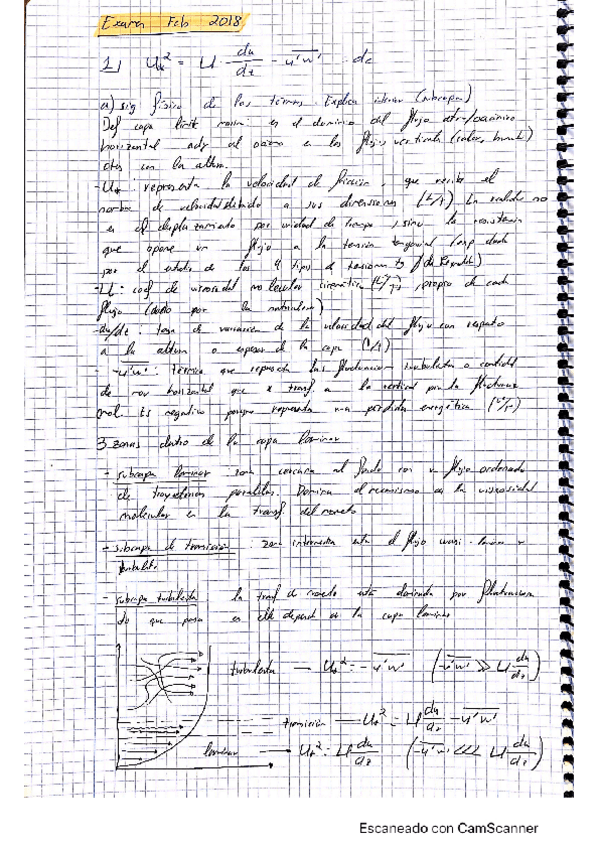 Examen Feb 2018
1) U*² = ν · du/dz - u'w' = cte
a) sig físico de los términos. Explica interior (subcapas)
Def capa límite : es el dominio del flujo atm/oceánico
horizontal ady al océano en los flujos verticales (calor, )
ctes con la altura.
- U* : representa la velocidad de fricción, que recibe el
nombre de velocidad debido a sus dimensiones (L/T) En realidad no
es el desplazamiento por unidad de tiempo, sino la resistencia
que opone un flujo a la tensión tangencial
por el de los 4 tipos de (de Reynolds)
- ν : coef de viscosidad molecular cinemática propio de cada
flujo (dado por la naturaleza)
- du/dz : tasa de variación de la velocidad del flujo con respecto
a la altura o espesor de la capa (1/T)
- -u'w' : término que representa las fluctuaciones turbulentas o cantidad
de mov horizontal que se transf a la vertical por la
Es negativo porque representa una pérdida energética
3 zonas dentro de la capa laminar
- subcapa laminar : zona cercana al fondo con un flujo ordenado
de trayectorias paralelas. Domina el mecanismo de la viscosidad
molecular en la transf del momento
- subcapa de transición : zona intermedia entre el flujo cuasi-laminar y
turbulento
- subcapa turbulenta la transf de momento está dominada por fluctuaciones
Lo que pasa en ella depende de la capa laminar
turbulenta → U*² = -u'w' (-u'w' >> ν du/dz)
transición → U*² = ν du/dz - u'w'
laminar → U*² = ν du/dz (-u'w' <<< ν du/dz)
Escaneado con CamScanner